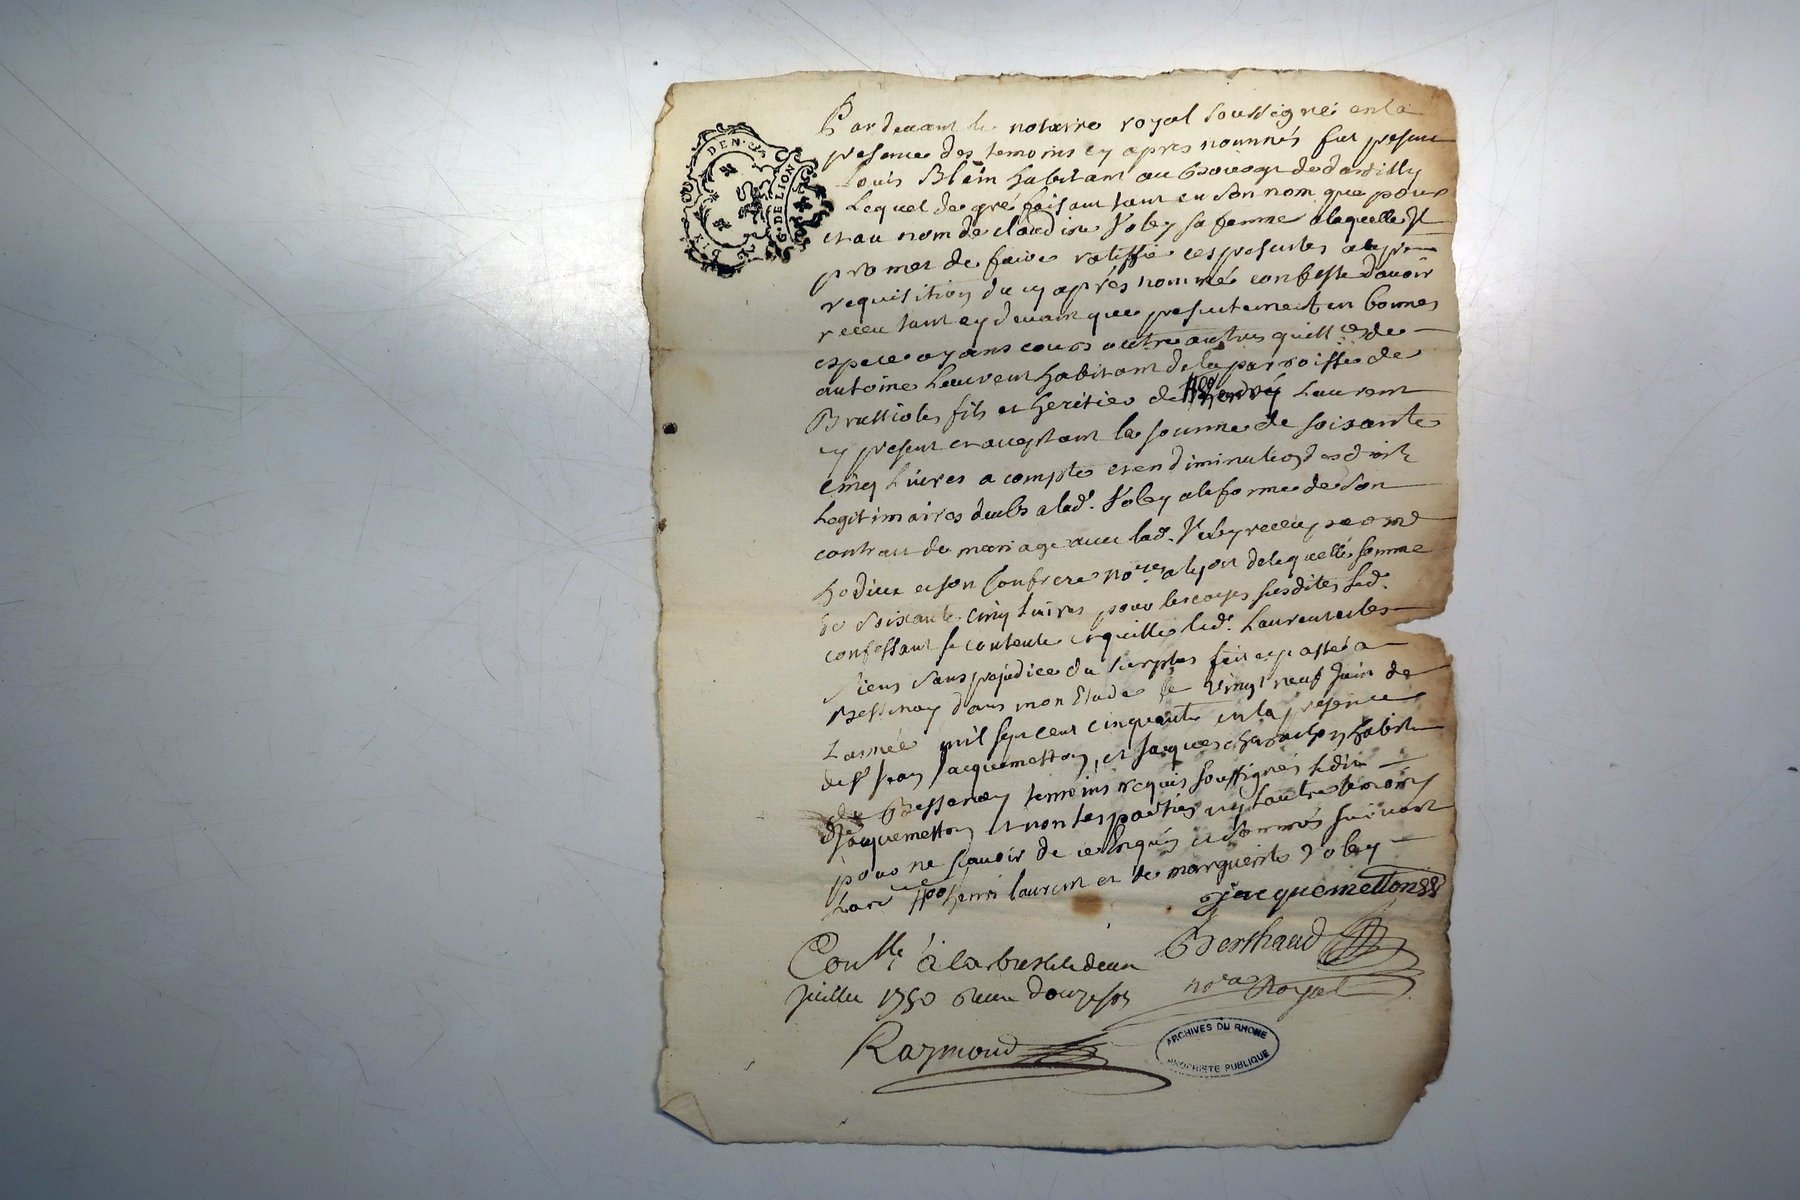 DEN.ers
G. DE LION
Par devant le notaire royal soussigné en la
presence des temoins cy apres nommés fut present
Louis Blein habitant au de dardilly
Lequel de gré faisant tant en son nom que pour
et au nom de claudine Voley sa femme a laquelle Il
promet de faire ratiffie ces presentes a la pre
requisition du cy aprés nommé confesse davoir
receu tant cy devant que presentement en bonnes
espece ayans cours outre autres quittces de
antoine Laurent habitant de la parroisse de
Brussioles fils et heritier de henry Laurent
cy present et acceptant la somme de soixante
cinq Livres a compte et en diminution des droits
Legitimaires deubs a lad. Voley a la forme de son
contrat de mariage avec lad. Voley receu par me
hodieu et son Confrere nores a lyon de laquelle somme
de soixante cinq livres pour les causes susdites led.
confessant se contente et quitte led. Laurent et les
siens sans prejudice du surplus fait et passé a
Bessenay dans mon Etude le vingt neuf Juin de
Lannée mil sept cent cinquante en la presence
de sr Jean Jacquemetton, et Jacques habits
de Bessenay temoins requis soussignés ledit
Jacquemetton et non les parties ny lautre temoins
pour ne scavoir de ce enquis et sommés suivant
Lord ce henri laurent et de marguerite Voley
Jacquemetton
Conllé à larbresle le deux
Berthaud
juillet 1750 receu douze sols
nore Royal
Raymond
ARCHIVES DU RHONE
PROCHISTE PUBLIQUE